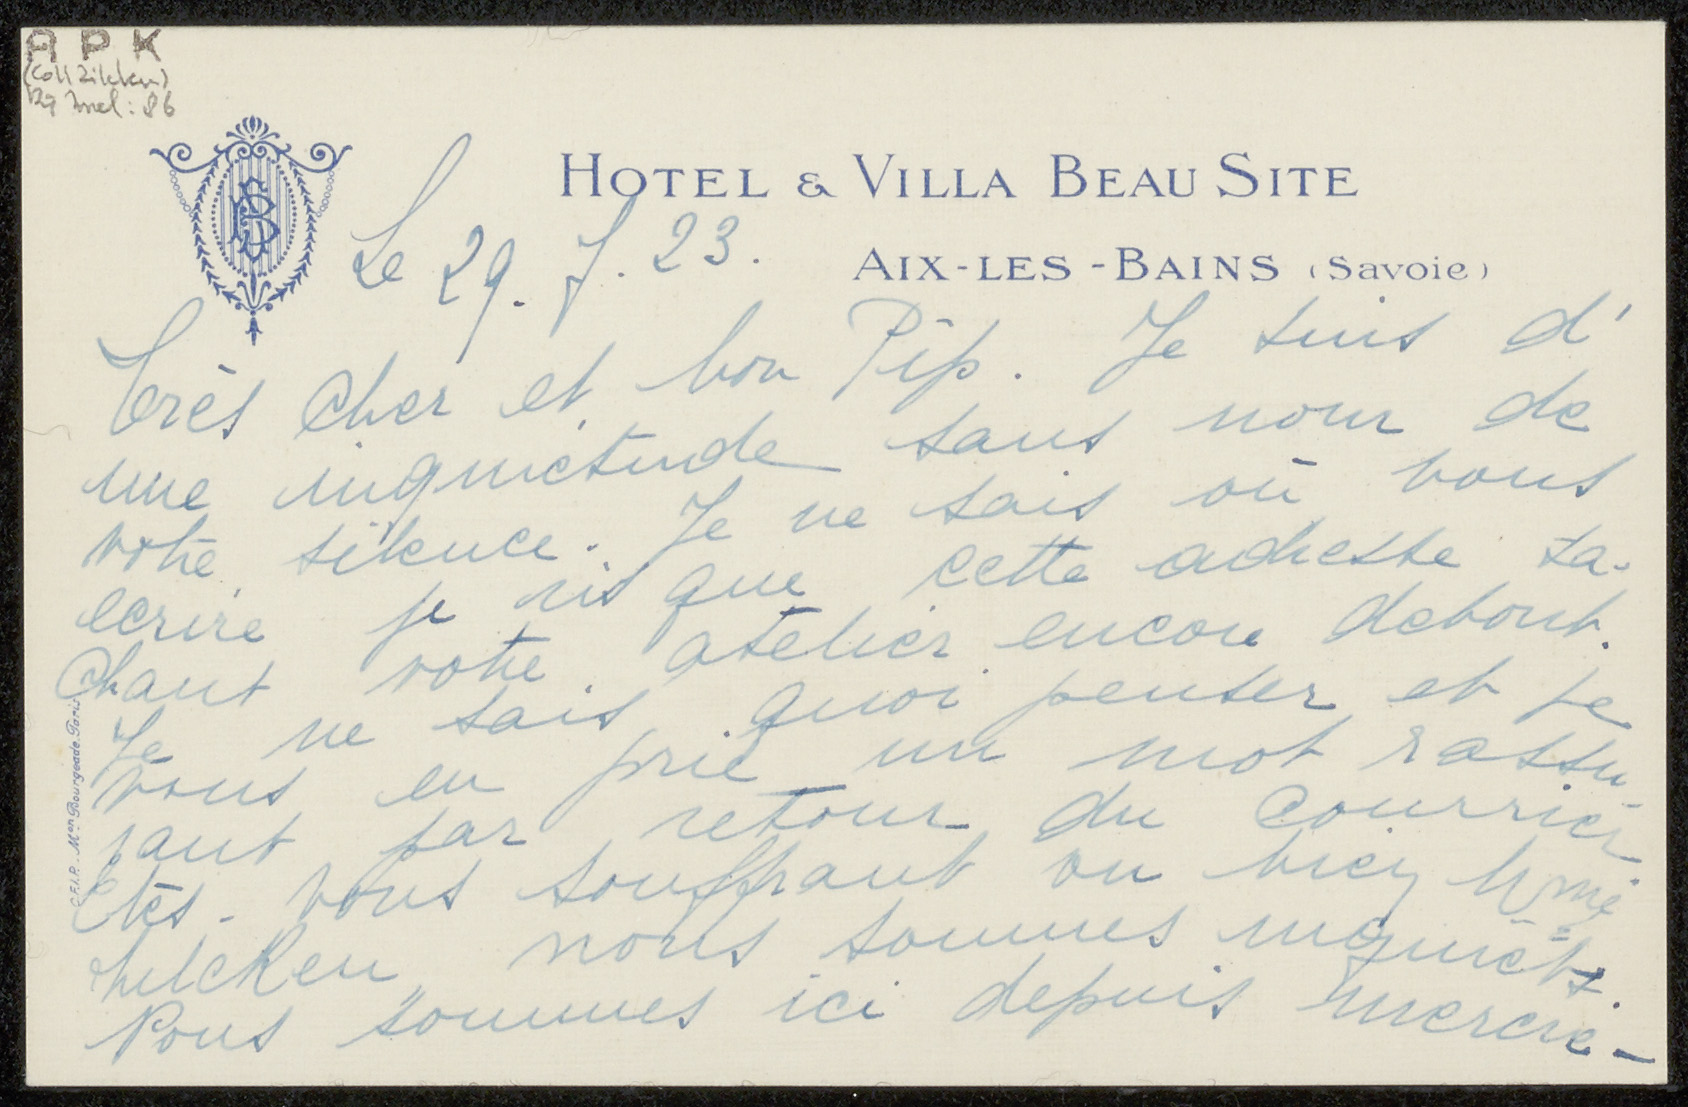 A P K
(Coll Zilcken)
HOTEL & VILLA BEAU SITE
AIX-LES-BAINS (Savoie)
BS
Le 29. J. 23.
Très Cher et bon Pip. Je suis d'
une inquiétude sans nom de
votre silence. Je ne sais où vous
ecrire je risque cette adresse sa-
chant votre atelier encore debout.
Je ne sais quoi penser et je
vous en prie un mot rassu-
rant par retour du courrier
Êtes-vous souffrant ou bien Mme
Zilcken, nous sommes inquiets.
Nous sommes ici depuis mercre-
C.F.I.P. - Mon Bourgeade. Paris